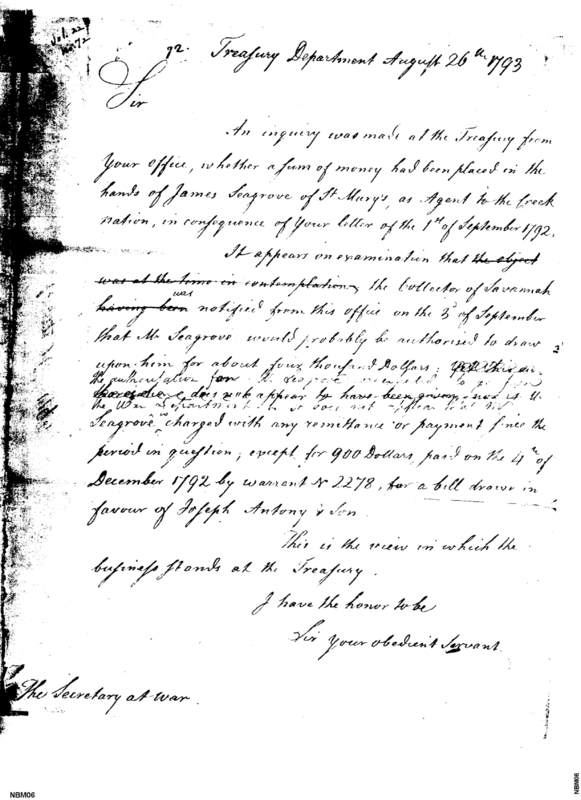 Vol. 22
No. 72
Treasury Department August 26th 1793
Sir
An inquiry was made at the Treasury from
Your office, whether a sum of money had been placed in the
hands of James Seagrove of St Mary's, as Agent to the Creek
nation, in consequence of Your letter of the 1st of September 1792.
It appears on examination that the object
was at the time in contemplation, the Collector of Savannah
was
having been notified from this office on the 3d of September
that Mr Seagrove would probably be authorised to draw
upon him for about four thousand Dollars;
the authorisation for
does not appear to have been given, nor is Mr
the War Department does not appear
Seagrove charged with any remittance or payment since the
period in question; except for 900 Dollars, paid on the 4th of
December 1792 by warrant No 2278, for a bill drawn in
favour of Joseph Antony & Son
This is the view in which the
business stands at the Treasury.
I have the honor to be
Sir Your obedient Servant
The Secretary at War
NBM06
NBM06